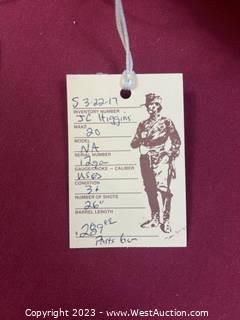 S 3-22-17
INVENTORY NUMBER
JC Higgins
MAKE
20
MODEL
NA
SERIAL NUMBER
12ga
GAUGE/CHOKE - CALIBER
Used
CONDITION
3+
NUMBER OF SHOTS
26"
BARREL LENGTH
$289
Parts Gun
Copyright 2023 - www.WestAuction.com